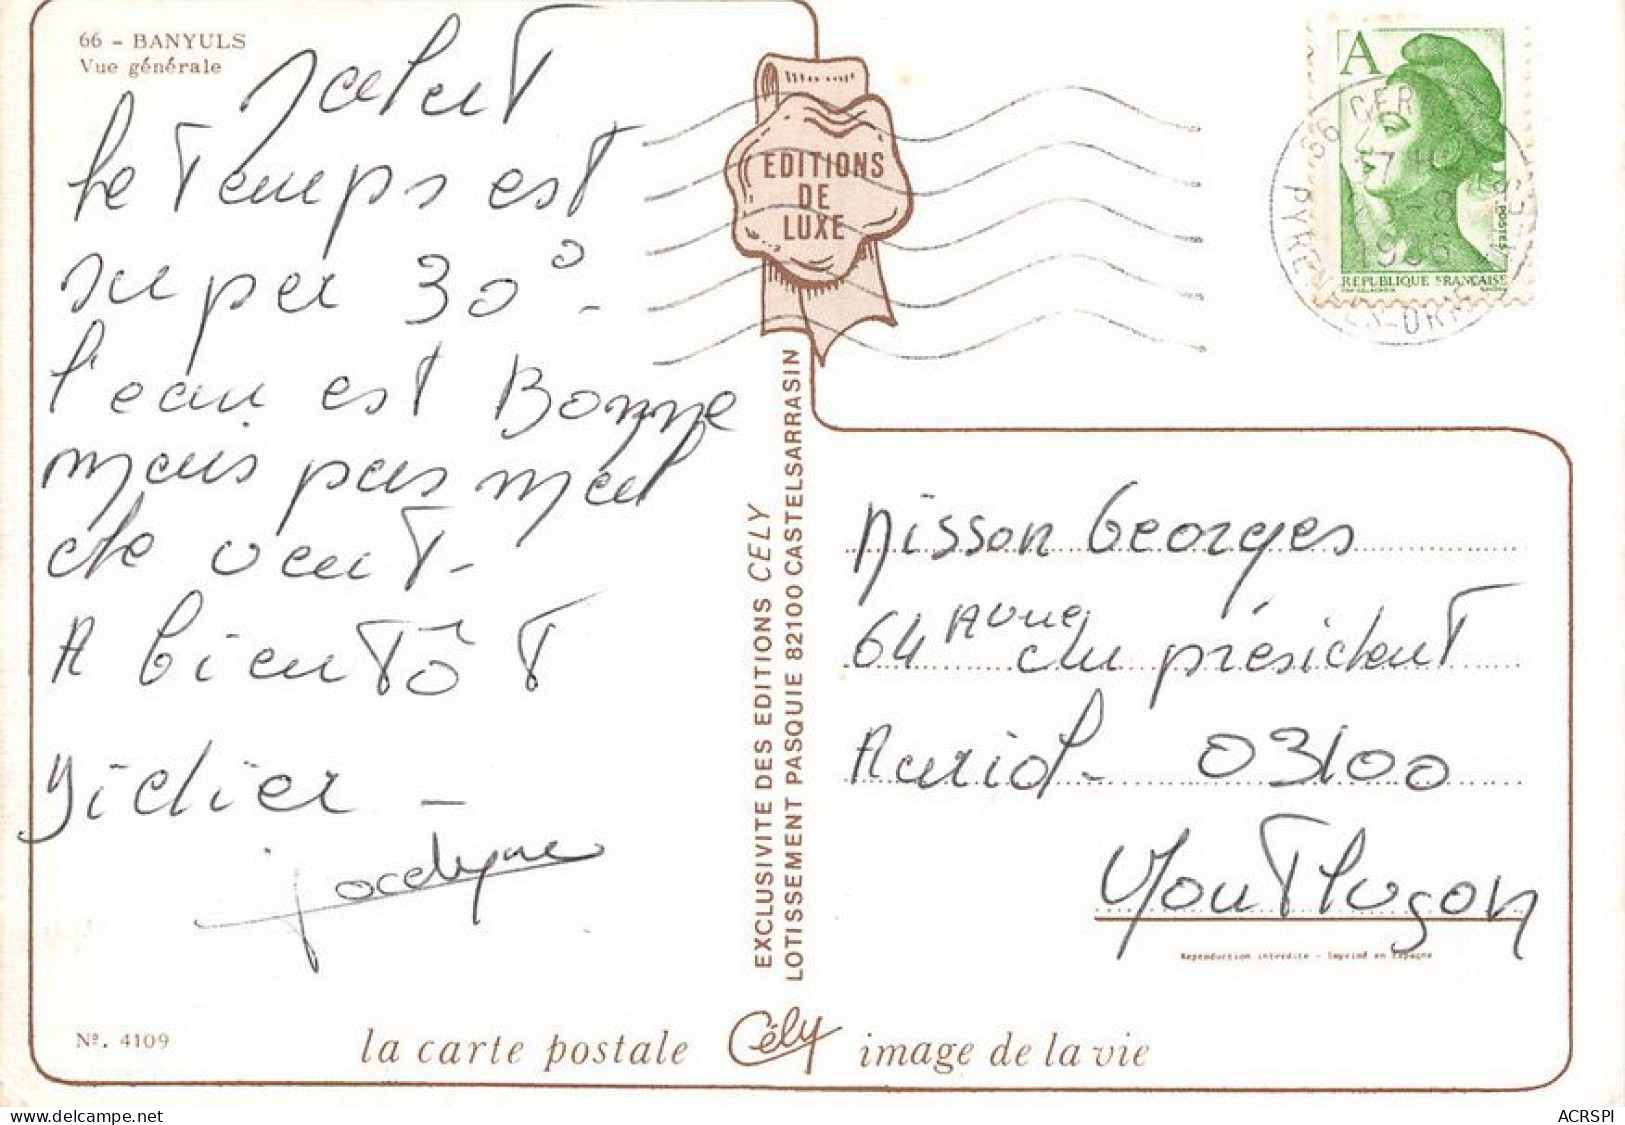 66 - BANYULS
Vue générale
Salut
le temps est
super 30° -
l'eau est Bonne
mais pas mal
de vent -
A bientôt
Didier -
jocelyne
Nº. 4109
EDITIONS
DE
LUXE
EXCLUSIVITE DES EDITIONS CELY
LOTISSEMENT PASQUIE 82100 CASTELSARRASIN
A
POSTES
REPUBLIQUE FRANÇAISE
66 CER
17 H
1986
PYRENEES-ORIENTALES
Nisson Georges
64 Avnue du président
Auriol - 03100
Montluçon
Reproduction interdite - Imprimé en Espagne
la carte postale Cély image de la vie
ACRSPI